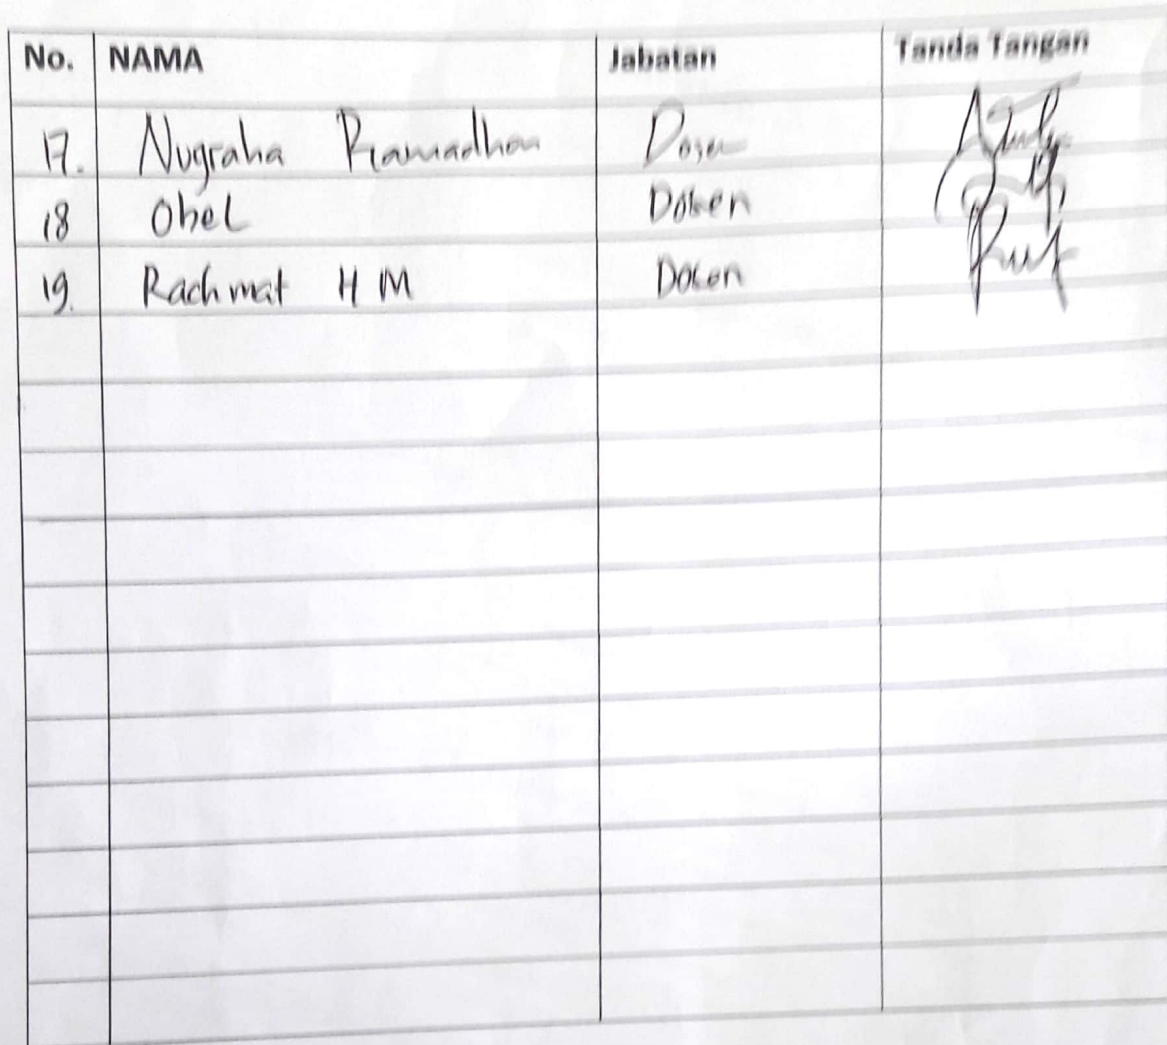 No. NAMA Jabatan Tanda Tangan
17. Nugraha Ramadhan Dosen
18 Obel Dosen
19. Rachmat H M Dosen